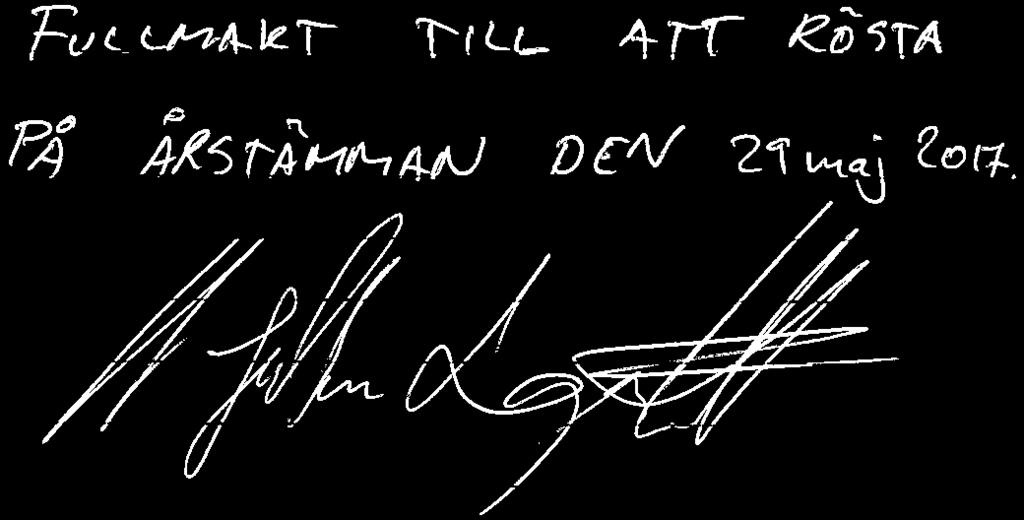 FULLMAKT TILL ATT RÖSTA
PÅ ÅRSTÄMMAN DEN 29 maj 2017.